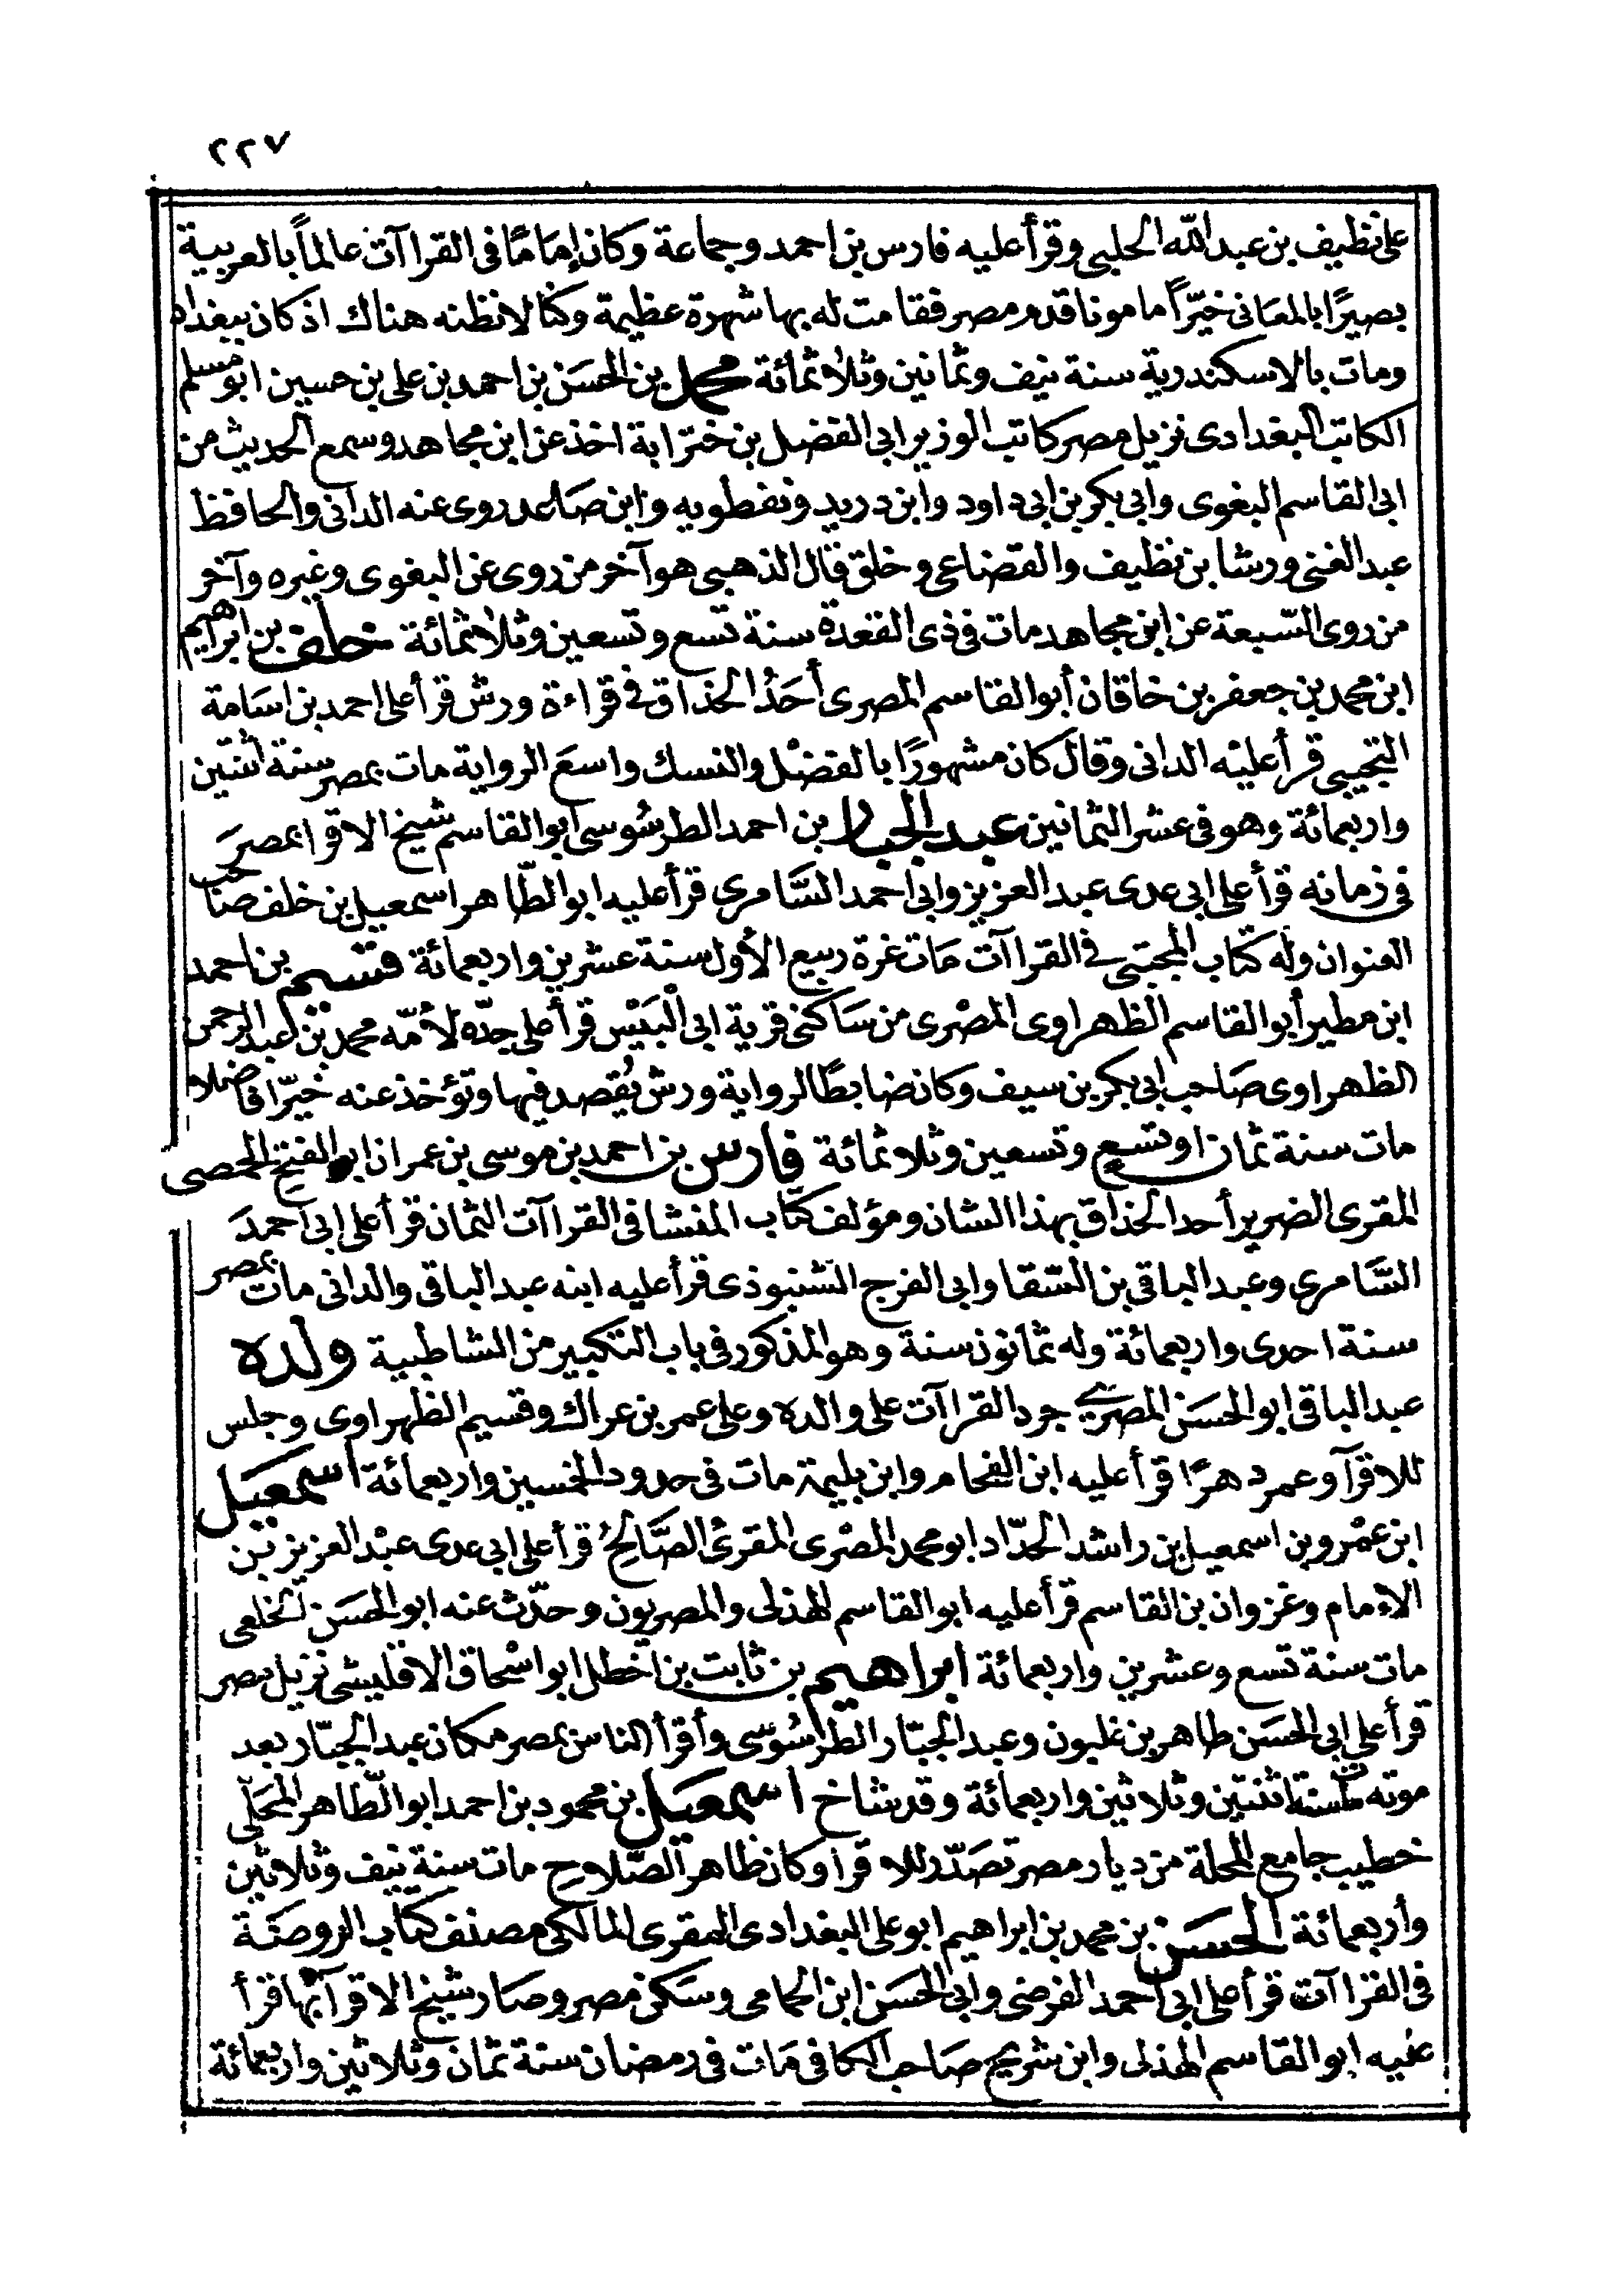 ٢٢٧
على نظيف بن عبد الله الحلبى وقرأ عليه فارس بن احمد وجماعة وكان إمَامًا فى القراآت عالماً بالعربية
بصيرًا بالمعَانى خيّرًا مامونا قدم مصر فقامت له بها شهرة عظيمة وكنا لا نظنه هناك اذ كان ببغداد
ومات بالاسكندرية سنة نيف وثمانين وثلاثمائة محمد بن الحسَن بن احمد بن على بن حسين ابو مسلم
الكاتب البغدادى نزيل مصر كاتب الوزير ابى الفضل بن خترابة اخذ عن ابن مجاهد وسمع الحديث من
ابى القاسم البغوى وابى بكر بن ابى داود وابن دريد ونفطويه وابن صَاعد روى عنه الدانى والحافظ
عبد الغنى ورشا بن نظيف والقضاعى وخلق قال الذهبى هو آخر من روى عن البغوى وغيره وآخر
من روى السّبعة عن ابن مجاهد مات فى ذى القعدة سنة تسع وتسعين وثلاثمائة خلف بن ابراهيم
ابن محمد بن جعفر بن خاقان أبو القاسم المصرى أحَدُ الحذاق فى قراءة ورش قرأ على احمد بن اسَامة
التجيبى قرأ عليْه الدانى وقال كان مشهورًا بالفضْل والنسك واسعَ الرواية مات بمصر سنة اثنتين
واربعمائة وهو فى عشر الثمانين عبد الجبار بن احمد الطرسُوسى ابو القاسم شيخ الاقرا بمصرَ
فى زمانه قرأ على ابى عدى عبد العزيز وابى احمد السَّامرى قرأ عليه ابو الطّاهر اسمعيل بن خلف صاحب
العنوان وله كتاب المجتبى فى القراآت مَات غرة ربيع الأول سنة عشرين واربعمائة قسيم بن احمد
ابن مطير أبو القاسم الظهراوى المصْرى من سَاكنى قرية ابى البَيْس قرأ على جدّه لأمّه محمد بن عبد الرحمن
الظهراوى صَاحب ابى بكر بن سيف وكان ضابطًا لرواية ورش يُقصد فيها وتؤخذ عنه خيّرا فاضلا
مات سنة ثمان او تسع وتسعين وثلاثمائة فارس بن احمد بن موسى بن عمران ابو الفتح الحمصى
المقرى الضرير أحد الحذاق بهذا الشان ومؤلف كتاب المنشا فى القراآت الثمان قرأ على ابى احمدَ
السَّامرى وعبد الباقى بن السّقا وابى الفرج الشنبوذى قرأ عليه ابنه عبد الباقى والدانى مات بمصر
سنة احدى واربعمائة وله ثمانون سنة وهو المذكور فى باب التكبير من الشاطبية ولده
عبد الباقى ابو الحسَن المصرى جرد القراآت على والده وعلى عمر بن عراك وقسيم الظهراوى وجلس
للاقرآ وعمر دهرًا قرأ عليه ابن الفحام وابن بليمة مات فى حدود الخمسين واربعمائة اسمعيل
ابن عمْرو بن اسمعيل بن راشد الحدّاد ابو محمد المصْرى المقرئُ الصَّالحُ قرأ على ابى عدى عبْد العزيز بن
الامام وغزوان بن القاسم قرأ عليه ابو القاسم الهذلى والمصريون وحدّث عنه ابو الحسَن الخلعى
مات سنة تسع وعشرين واربعمائة ابراهيم بن ثابت بن اخطل ابو اسْحاق الاقليشى نزيل مصر
قرأ على ابى الحسَن طاهر بن غلبون وعبد الجبّار الطرسُوسّى وأقرأ الناس بمصر مكان عبد الجبّار بعد
موته مات سنة اثنتين وثلاثين واربعمائة وقد شاخ اسمعيل بن محمود بن احمد ابو الطّاهر المحَلّى
خطيب جامع المحلة من ديار مصر تصَدّر للاقرا وكان ظاهر الصّلاح مات سنة نيف وثلاثين
وأربعمائة الحسَن بن محمد بن ابراهيم ابو على البغدادى المقرى المالكى مصنف كتاب الروضَة
فى القراآت قرأ على ابى احمد الفرضى وابى الحسَن ابن الحمامى وسَكن مصر وصَار شيخ الاقرآ بها قرأ
عليه ابو القاسم الهذلى وابن شريح صَاحب الكافى مَات فى رمضان سنة ثمان وثلاثين واربعمائة